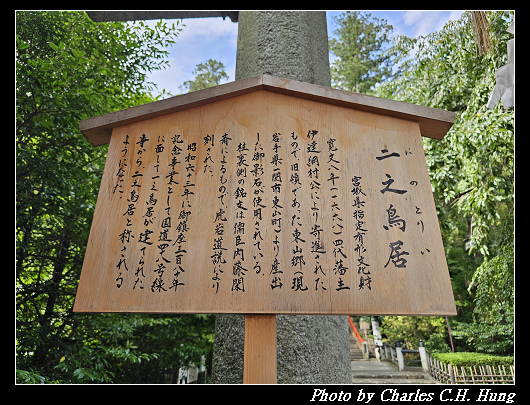 二之鳥居
にのとりい
宮城県指定有形文化財
寛文八年(一六六八)四代藩主
伊達綱村公により寄進された
もので、旧領であった東山郷(現
岩手県一関市東山町)より産出
した御影石が使用されている。
柱裏側の銘文は儒臣内藤閑
斎によるもので、虎岩道説により
刻された。
昭和六十三年に御鎮座三百八十年
記念事業として国道四十八号線
に面して一之鳥居が建てられた
事から二之鳥居と称される
ようになった。
Photo by Charles C.H. Hung